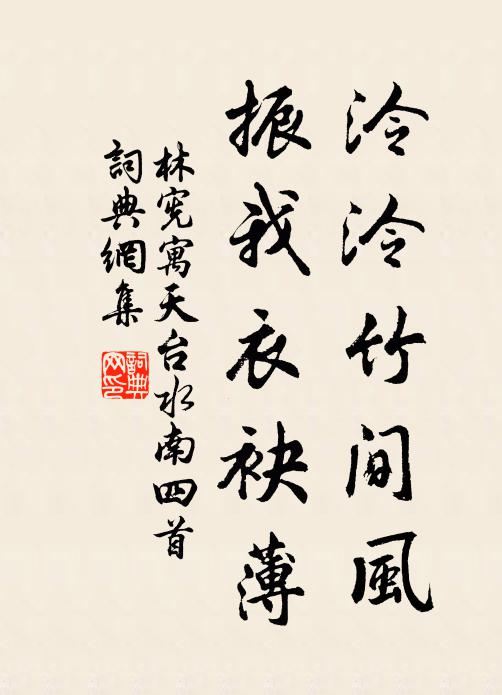 泠泠竹間風
振我衣袂薄
林宪寓天台水南四首
詞典網集
詞典網印